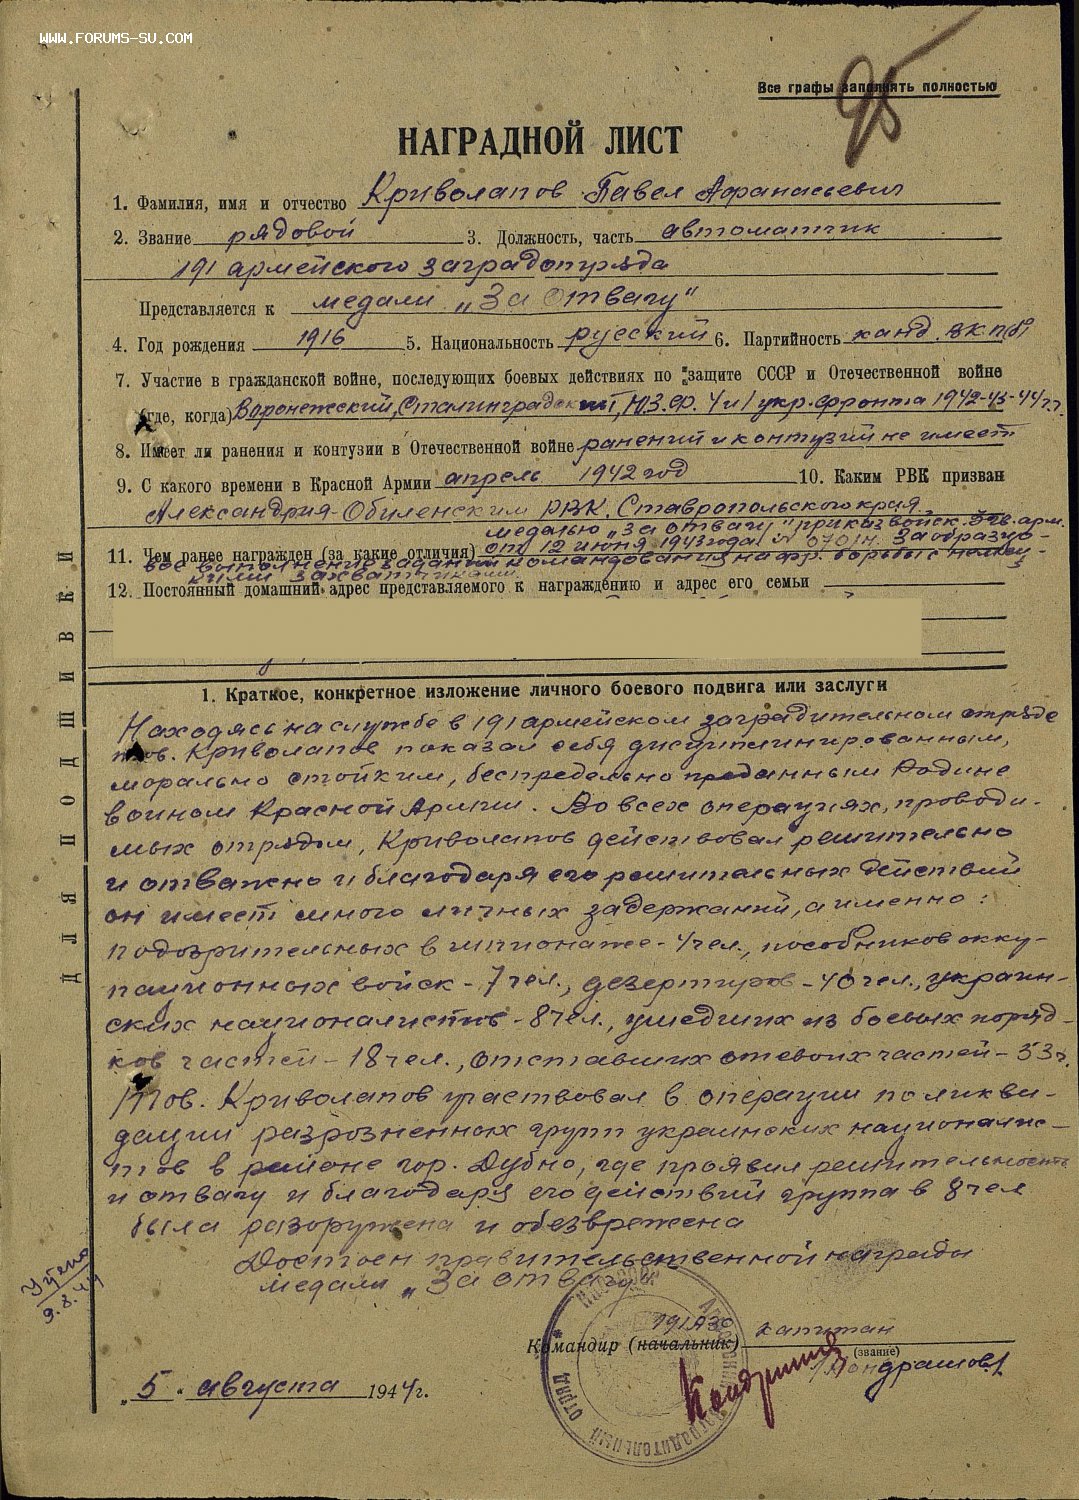 WWW.FORUMS-SU.COM
95
Все графы заполнять полностью
НАГРАДНОЙ ЛИСТ
1. Фамилия, имя и отчество Криволапов Павел Афанасьевич
2. Звание рядовой 3. Должность, часть автоматчик
191 армейского заградотряда
Представляется к медали „За Отвагу"
4. Год рождения 1916 5. Национальность русский 6. Партийность канд. ВКП(б)
7. Участие в гражданской войне, последующих боевых действиях по защите СССР и Отечественной войне
(где, когда) Воронежский, Сталинградский, Ю.З.Ф. 4 и 1 укр. фронта 1942-43-44 г.г.
8. Имеет ли ранения и контузии в Отечественной войне ранений и контузий не имеет
9. С какого времени в Красной Армии апрель 1942 год 10. Каким РВК призван
Александрия-Обиленским РВК. Ставропольского края
медалью „За отвагу" приказ войск. арм.
11. Чем ранее награжден (за какие отличия) от 12 июня 1943 года № 070/н. За образцо-
вое выполнение заданий командования на фр. борьбы с немец-
кими захватчиками
12. Постоянный домашний адрес представляемого к награждению и адрес его семьи
ДЛЯ ПОДШИВКИ
1. Краткое, конкретное изложение личного боевого подвига или заслуги
Находясь на службе в 191 армейском заградительном отряде
тов. Криволапов показал себя дисциплинированным,
морально стойким, беспредельно преданным Родине
воином Красной Армии. Во всех операциях, проводи-
мых отрядом, Криволапов действовал решительно
и отважно и благодаря его решительных действий
он имеет много личных задержаний, а именно:
подозрительных в шпионаже - 4 чел., пособников окку-
пационных войск - 7 чел., дезертиров - 40 чел., украин-
ских националистов - 8 чел., ушедших из боевых поряд-
ков частей - 18 чел., отставших от своих частей - 53 ч.
Тов. Криволапов участвовал в операции по ликви-
дации разрозненных групп украинских националис-
тов в районе гор. Дубно, где проявил решительность
и отвагу и благодаря его действий группа в 8 чел
была разоружена и обезврежена
Достоен правительственной награды
медали „За отвагу"
9.8.44
191 АЗО капитан
Командир (начальник)
(звание)
/Кондрашов/
„5" августа 1944 г.